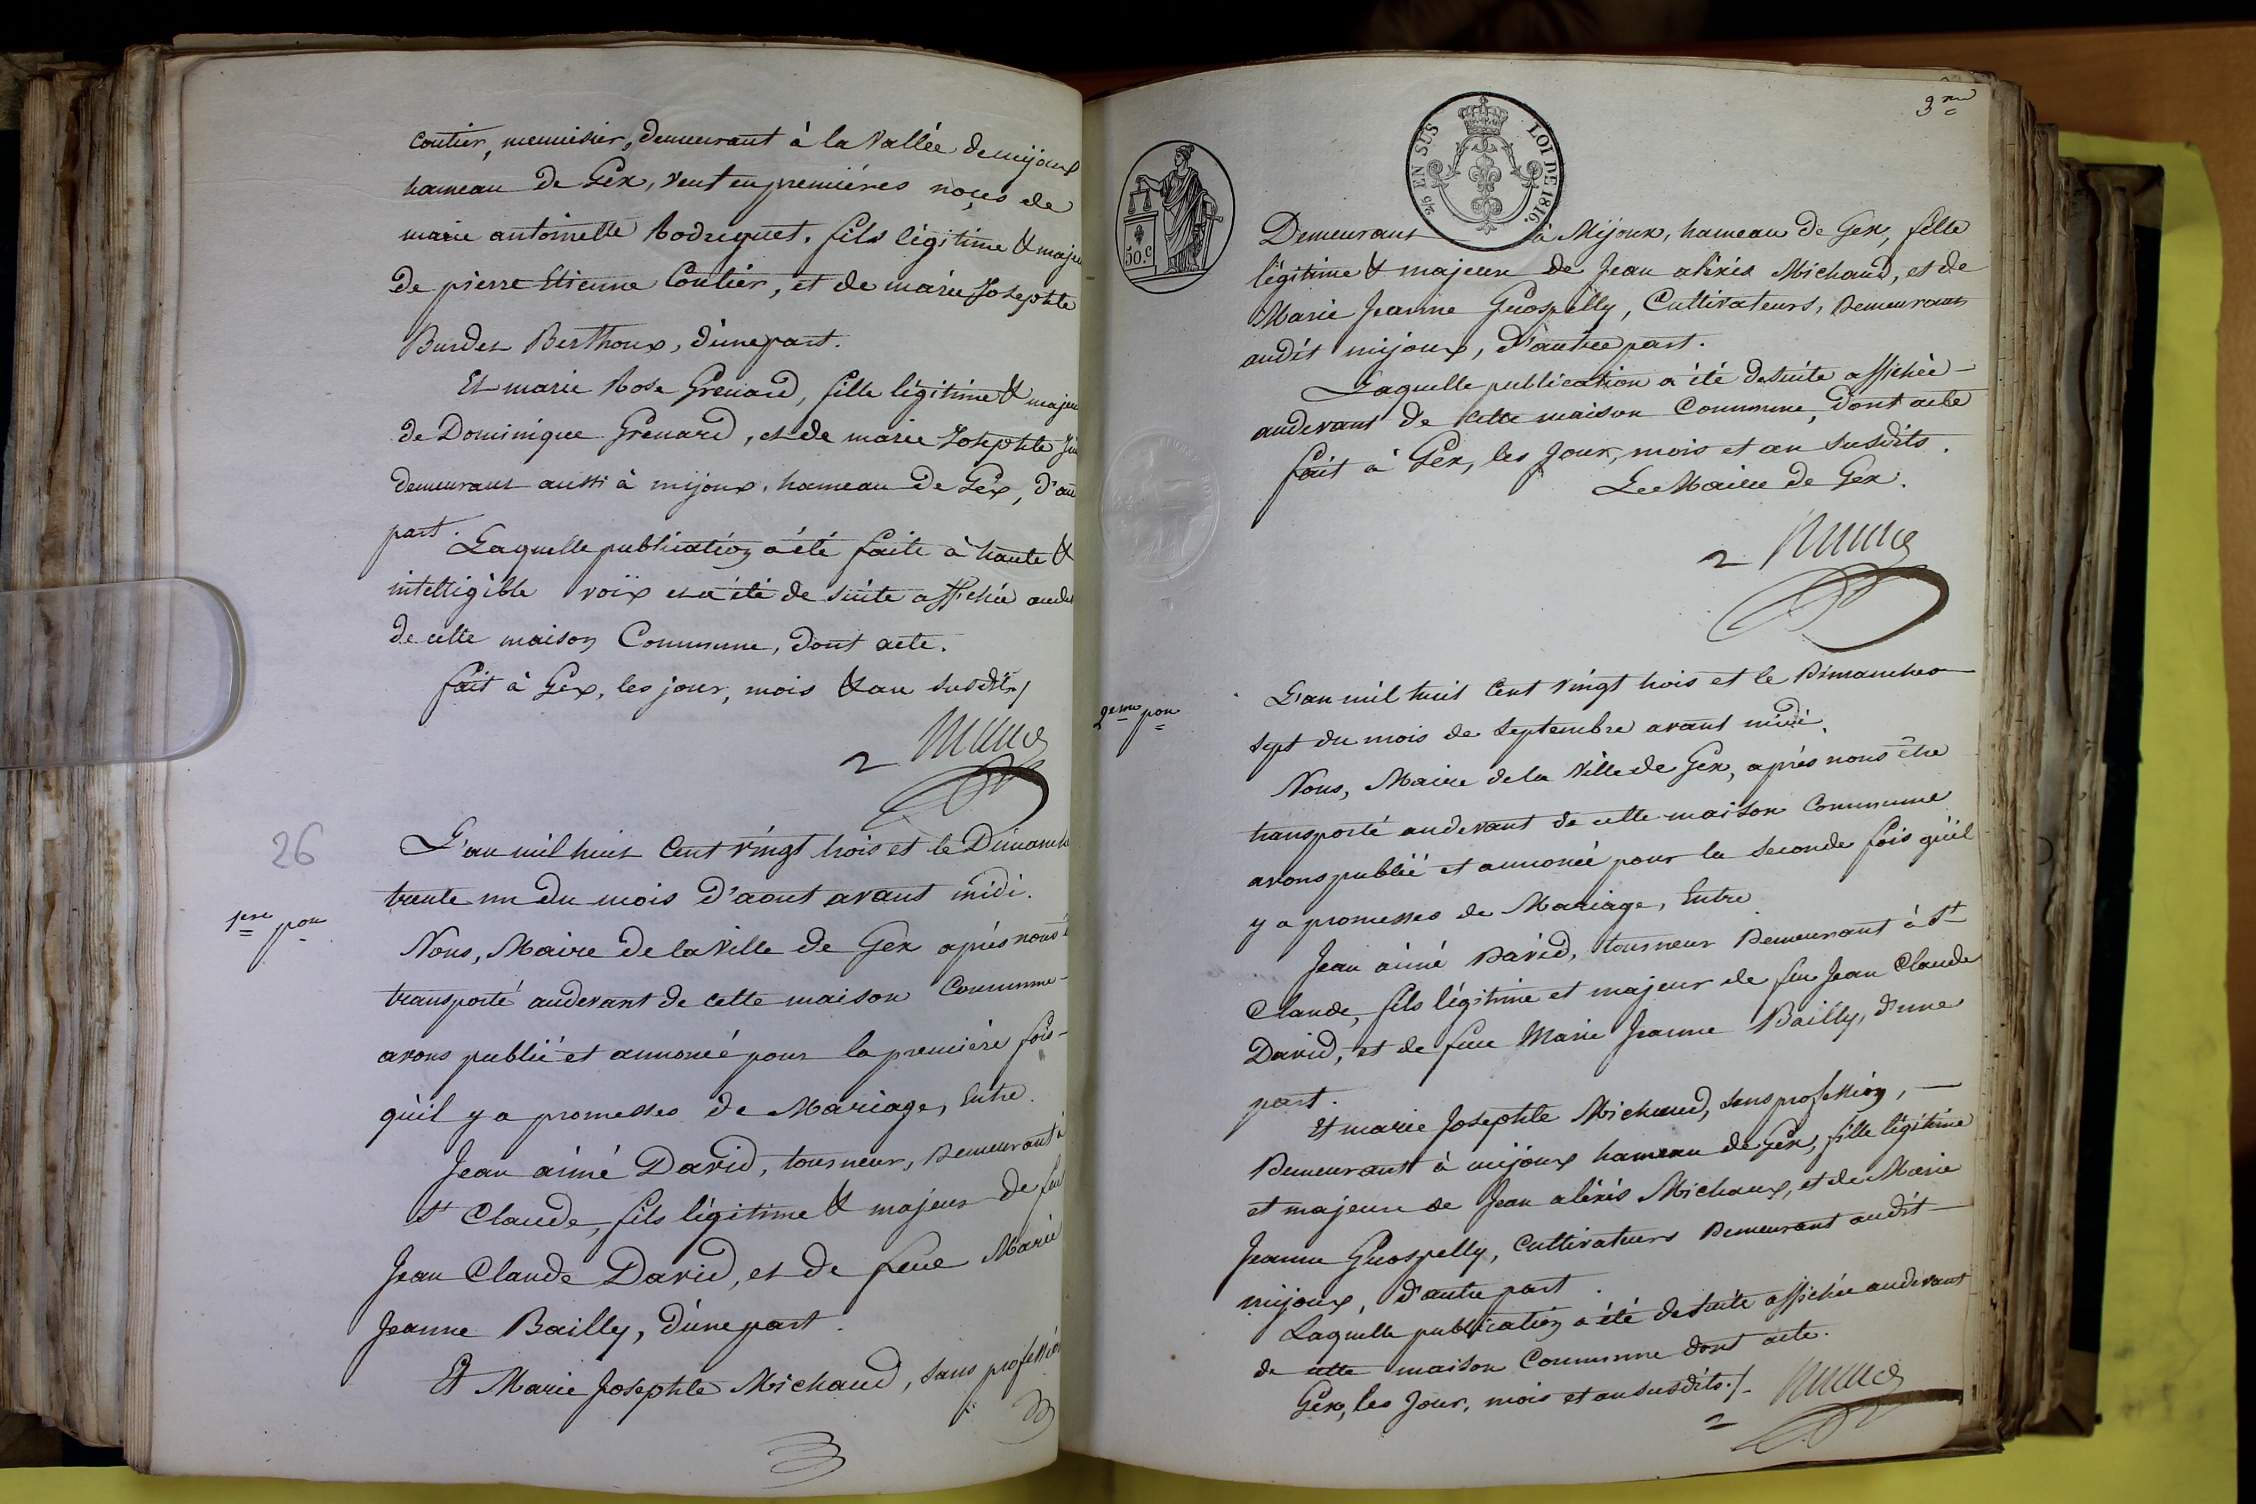 Coutier, menuisier, demeurant à la Vallée de mijoux
hameau de Gex, veuf en premières noces de
marie antoinette Rodriguet, fils légitime & majeu
de pierre Etienne Coutier, et de marie Josephte
Burdet Berthoux, d'une part.
Et marie Rose Grenard, fille légitime & majeu
de Dominique Grenard, et de marie Josephte
demeurant aussi à mijoux, hameau de Gex, d'au
part.
Laquelle publication a été faite à haute &
intelligible voix et a été de suite affichée aude
de cette maison Commune, dont acte.
fait à Gex, les jour, mois & an susdits /
2
26
L'an mil huit Cent vingt trois et le Dimanche
trente un du mois d'aout avant midi.
1ere pon
Nous, Maire de la Ville de Gex après nous
transporté audevant de cette maison Commune
avons publié et annoncé pour la première fois
qu'il y a promesses de Mariage, Entre
Jean aimé David, tourneur, demeurant à
St Claude, fils légitime & majeur de feu
Jean Claude David, et de feue Marie
Jeanne Bailly, d'une part.
Et Marie Josephte Michaud, sans profession
3me
2/10 EN SUS LOI DE 1816.
50.C
Demeurant à Mijoux, hameau de Gex, fille
légitime & majeure de Jean alexis Michaud, et de
Marie Jeanne Grospelly, Cultivateurs, demeurans
audit mijoux, d'autre part.
Laquelle publication a été desuite affichée
audevant de cette maison Commune, dont acte
fait à Gex, les Jour, mois et an susdits.
Le Maire de Gex.
2
L'an mil huit Cent vingt trois et le Dimanche
2eme pon
sept du mois de Septembre avant midi.
Nous, Maire de la Ville de Gex, après nous être
transporté audevant de cette maison Commune
avons publié et annoncé pour la seconde fois qu'il
y a promesses de Mariage, Entre
Jean aimé David, tourneur Demeurant à St
Claude, fils légitime et majeur de feu Jean Claude
David, et de feue Marie Jeanne Bailly, d'une
part.
Et marie Josephte Michaud, sans profession,
Demeurant à mijoux hameau de Gex, fille légitime
et majeure de Jean alexis Michaux, et de Marie
Jeanne Grospelly, Cultivateurs Demeurant audit
mijoux, d'autre part.
Laquelle publication a été desuite affichée audevant
de cette maison Commune dont acte.
Gex, les Jour, mois et an susdits./.
2